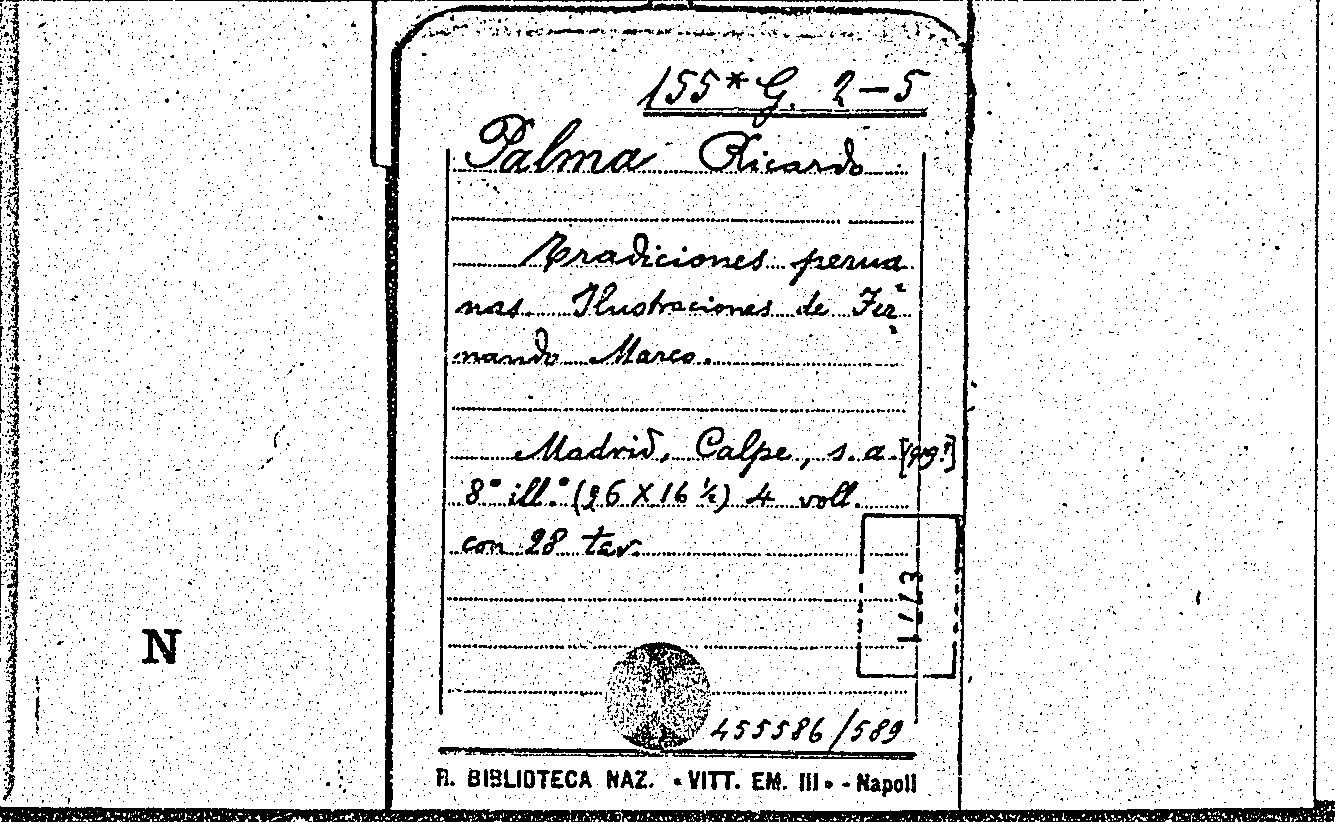 155* G. 2-5
Palma Ricardo
Tradiciones perua
nas. Ilustraciones de Fer=
nando Marco.
Madrid, Calpe, s. a.
8° ill.° (26 X 16 ½) 4 voll.
con 28 tav.
N
455586/589
R. BIBLIOTECA NAZ. «VITT. EM. III» - Napoli